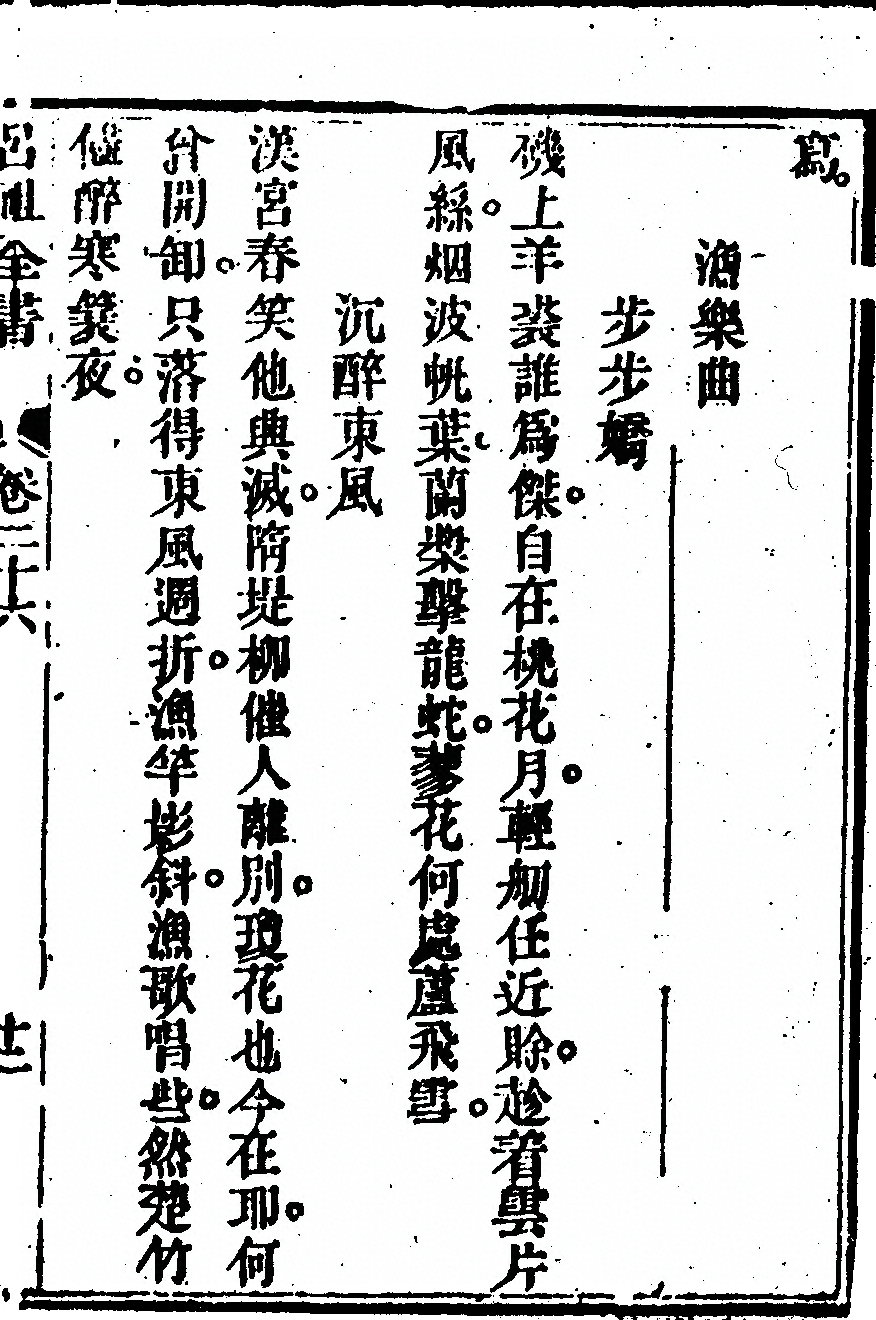 寫。
漁樂曲
步步嬌
磯上羊裘誰爲傑。自在桃花月。輕舠任近賒。趁着雲片
風絲。烟波帆葉。蘭槳擊龍蛇。蓼花何處蘆飛雪。
沉醉東風
漢宮春笑他興滅。隋堤柳催人離別。瓊花也今在耶。何
曾開卸。只落得東風週折。漁竿影斜。漁歌唱些。然楚竹
儘醉寒簑夜。
呂祖全書 卷二十六 廿二